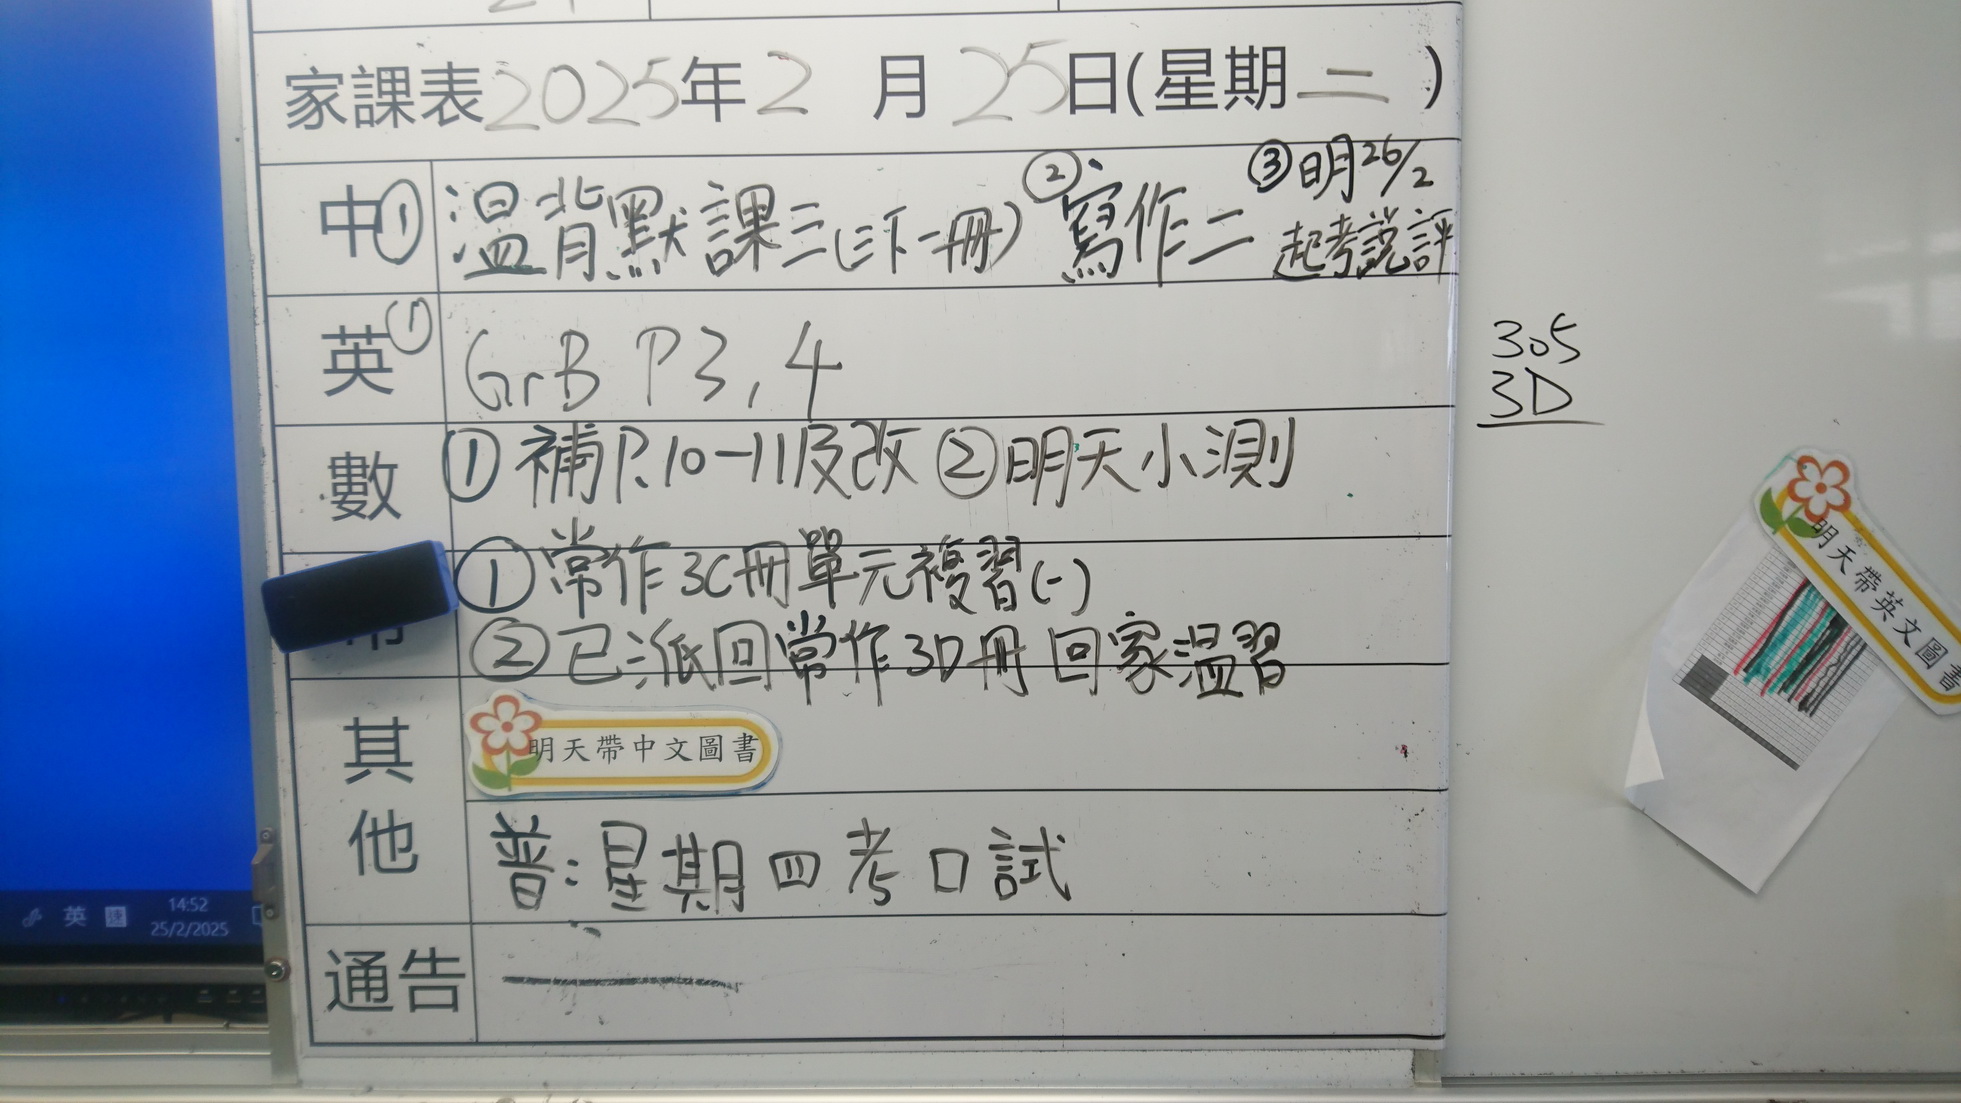 家課表2025年2月25日(星期二)
中① 温背默課三(三下一冊) ②寫作二 ③明26/2
起考說評
英① GrB P3,4
數 ①補P.10-11及改 ②明天小測
①常作3C冊單元複習(一)
常 ②已派回常作3D冊 回家温習
其他 明天帶中文圖書
普:星期四考口試
通告
305
3D
明天帶英文圖書
英
14:52
25/2/2025